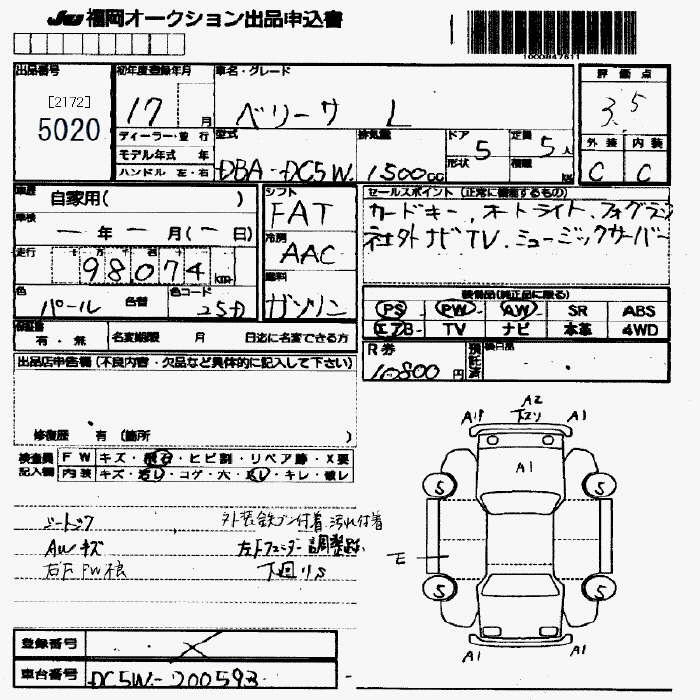 JU 福岡オークション出品申込書
1000847611
出品番号
[2172]
5020
初年度登録年月
17 月
車名・グレード
ベリーサ L
評価点
3.5
外装 内装
C C
ディーラー・並行
モデル年式 年
ハンドル 左・右
型式
DBA-DC5W
排気量
1500cc
ドア 5
形状
定員 5人
積載 kg
車歴
自家用( )
車検
ー年ー月(ー日)
走行
98074 km
色
パール
色替
色コード
25D
シフト
FAT
冷房
AAC
燃料
ガソリン
セールスポイント (正常に機能するもの)
カードキー、オートライト、フォグラン
社外ナビ、TV、ミュージックサーバー
装備品(純正品に限る)
PS PW AW SR ABS
エアB TV ナビ 本革 4WD
保証書
有・無
名変期限 月 日迄に名変できる方
R券
10800円
預託済
後日品
出品店申告欄 (不良内容・欠品など具体的に記入して下さい)
修復歴 有 (箇所 )
検査員記入欄
FW キズ・飛石・ヒビ割・リペア跡・X要
内装 キズ・汚れ・コゲ・穴・スレ・キレ・破レ
シートスック
外装鉄フン付着 汚れ付着
AWキズ
左Fフェンダー調整跡
右F FW根
下回りS
A2
A1P 下スリ A1
A1
S S
E
S S
A1 A1
登録番号
車台番号 DC5W-200593